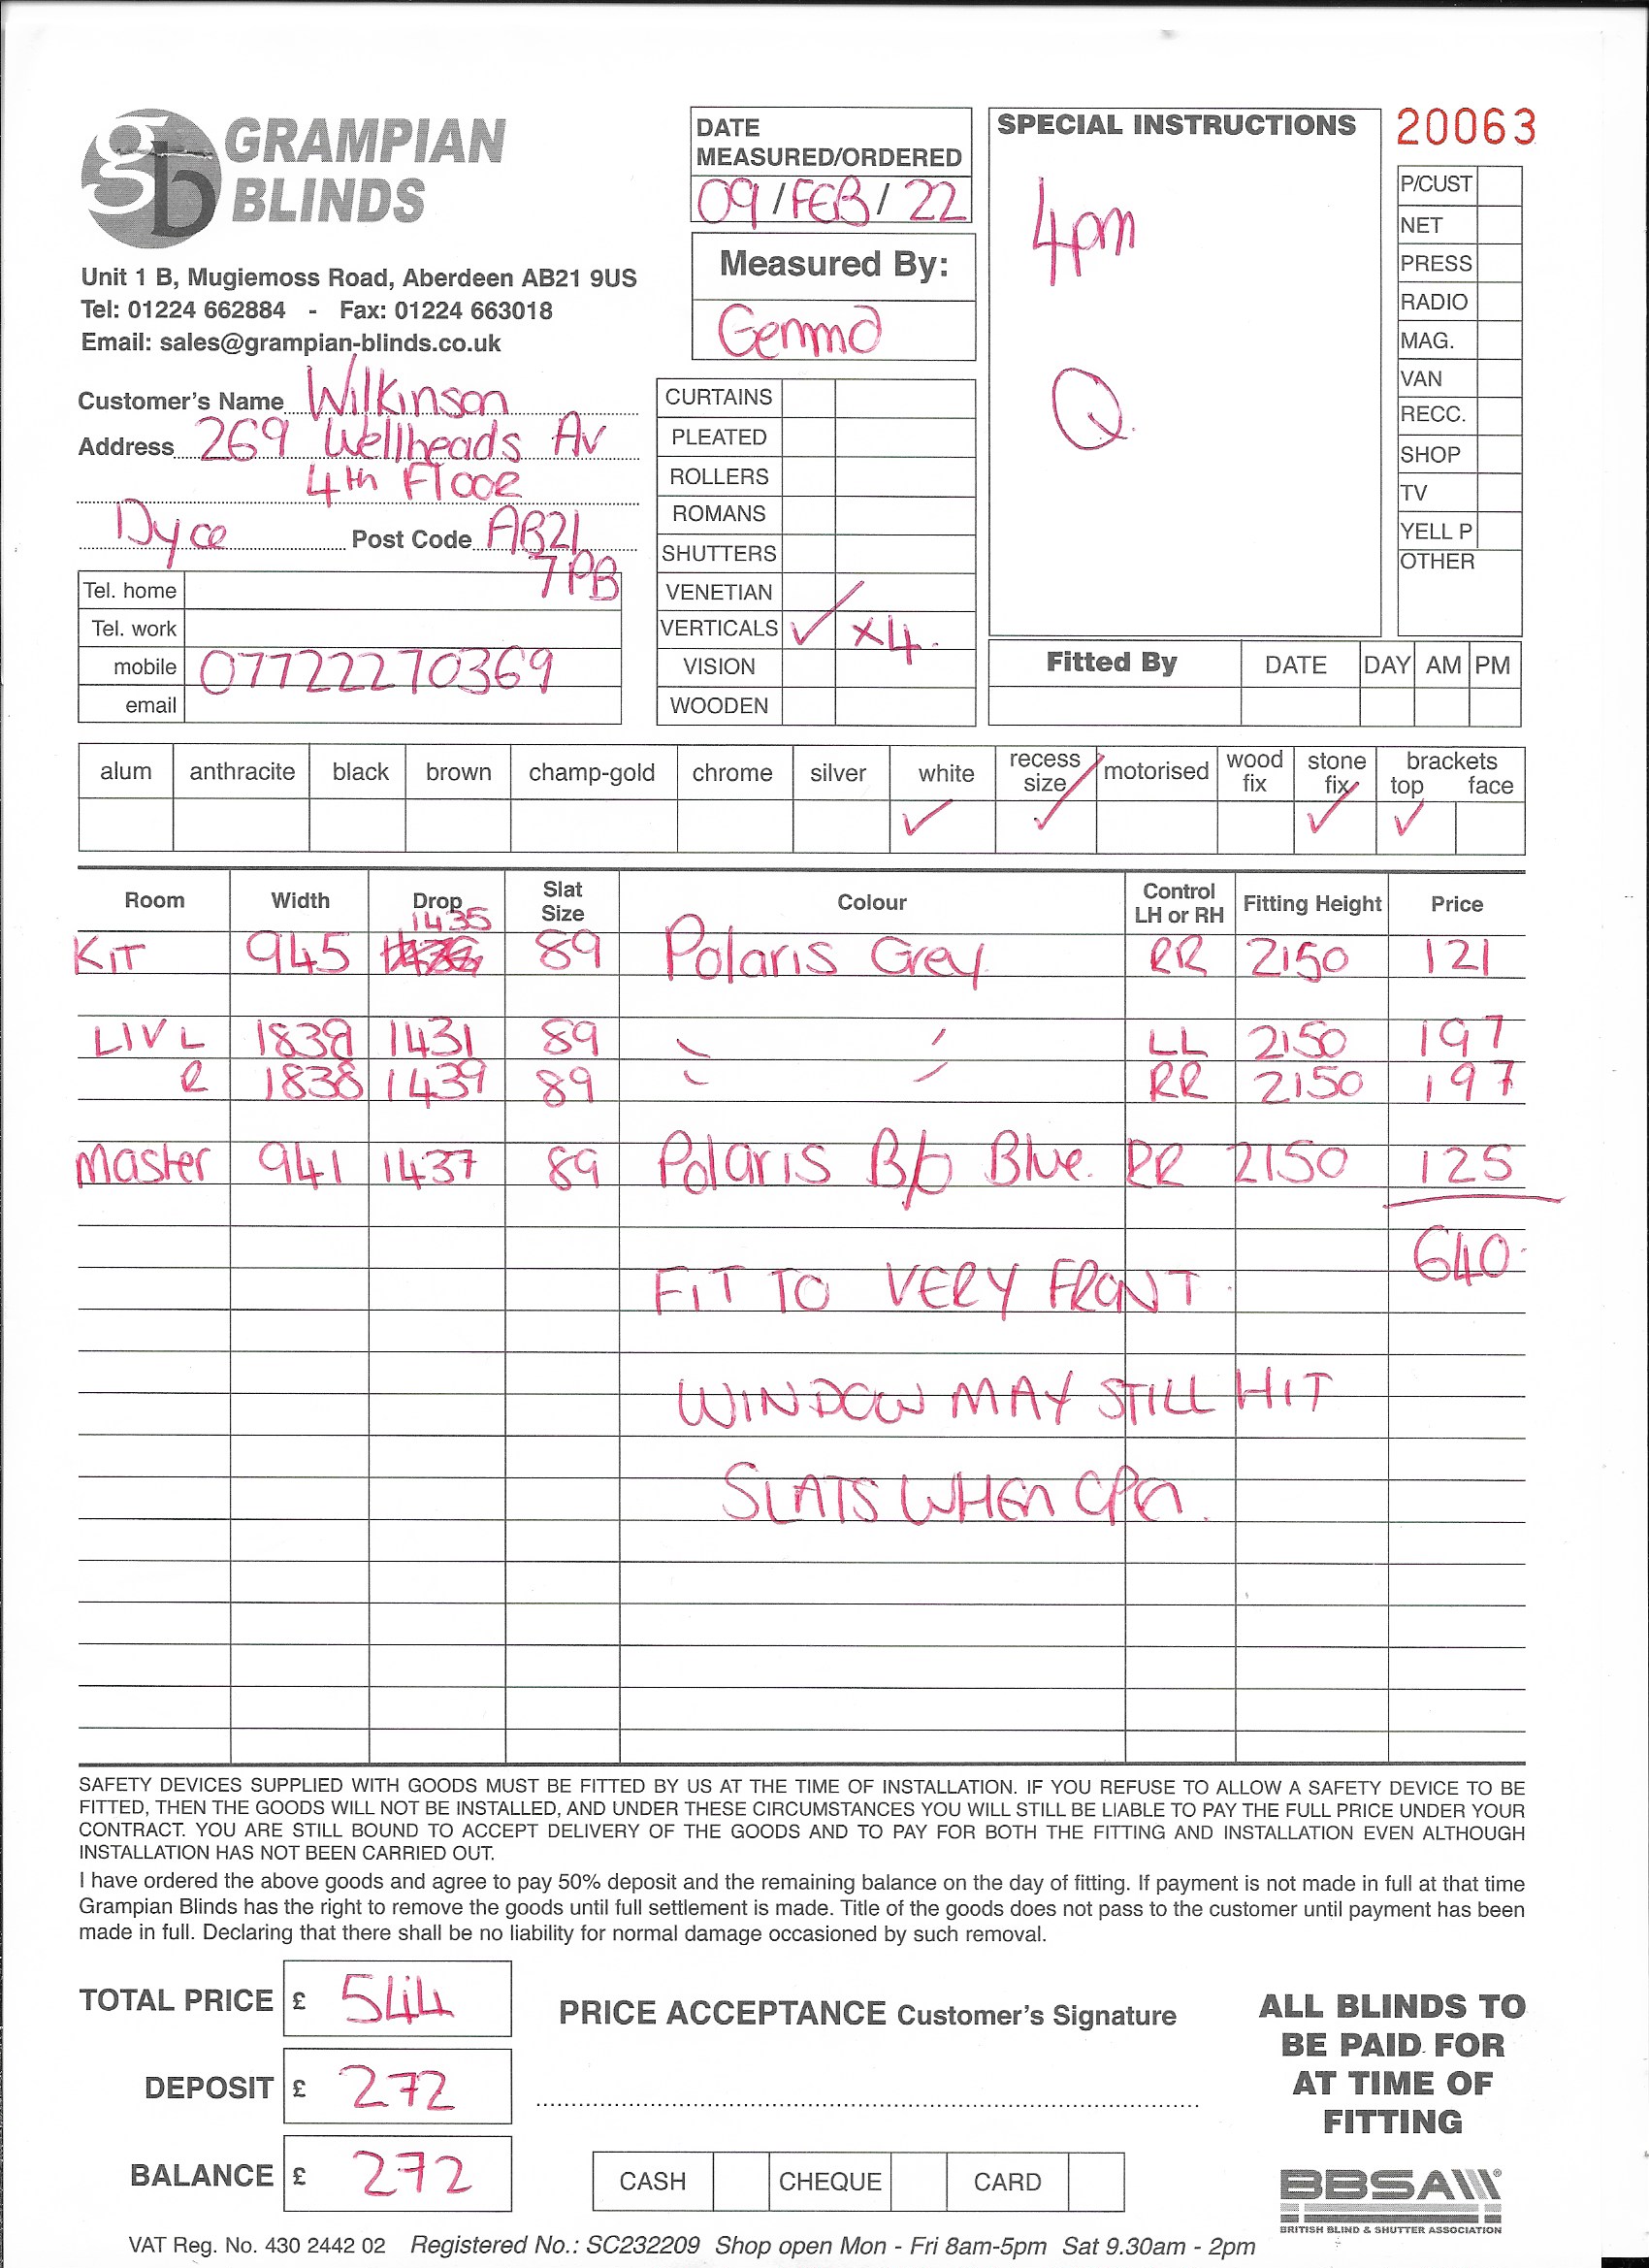 GRAMPIAN
BLINDS
Unit 1 B, Mugiemoss Road, Aberdeen AB21 9US
Tel: 01224 662884 - Fax: 01224 663018
Email: sales@grampian-blinds.co.uk
DATE
MEASURED/ORDERED
09/FEB/22
Measured By:
Gemma
SPECIAL INSTRUCTIONS
4pm
Q
20063
P/CUST
NET
PRESS
RADIO
MAG.
VAN
RECC.
SHOP
TV
YELL P
OTHER
Customer's Name Wilkinson
Address 269 Wellheads Av
4th Floor
Dyce Post Code AB21
7PB
Tel. home
Tel. work
mobile 07722270369
email
CURTAINS
PLEATED
ROLLERS
ROMANS
SHUTTERS
VENETIAN
VERTICALS ✓ x4.
VISION
WOODEN
Fitted By DATE DAY AM PM
alum anthracite black brown champ-gold chrome silver white recess size motorised wood fix stone fix brackets top face
✓ ✓ ✓ ✓
Room Width Drop Slat Size Colour Control LH or RH Fitting Height Price
1435
KIT 945 89 Polaris Grey RR 2150 121
LIV L 1839 1431 89 LL 2150 197
R 1838 1439 89 RR 2150 197
Master 941 1437 89 Polaris B/o Blue. RR 2150 125
640
FIT TO VERY FRONT.
WINDOW MAY STILL HIT
SLATS WHEN OPEN.
SAFETY DEVICES SUPPLIED WITH GOODS MUST BE FITTED BY US AT THE TIME OF INSTALLATION. IF YOU REFUSE TO ALLOW A SAFETY DEVICE TO BE
FITTED, THEN THE GOODS WILL NOT BE INSTALLED, AND UNDER THESE CIRCUMSTANCES YOU WILL STILL BE LIABLE TO PAY THE FULL PRICE UNDER YOUR
CONTRACT. YOU ARE STILL BOUND TO ACCEPT DELIVERY OF THE GOODS AND TO PAY FOR BOTH THE FITTING AND INSTALLATION EVEN ALTHOUGH
INSTALLATION HAS NOT BEEN CARRIED OUT.
I have ordered the above goods and agree to pay 50% deposit and the remaining balance on the day of fitting. If payment is not made in full at that time
Grampian Blinds has the right to remove the goods until full settlement is made. Title of the goods does not pass to the customer until payment has been
made in full. Declaring that there shall be no liability for normal damage occasioned by such removal.
TOTAL PRICE £ 544
DEPOSIT £ 272
BALANCE £ 272
PRICE ACCEPTANCE Customer's Signature
CASH CHEQUE CARD
ALL BLINDS TO
BE PAID FOR
AT TIME OF
FITTING
BBSA
BRITISH BLIND & SHUTTER ASSOCIATION
VAT Reg. No. 430 2442 02 Registered No.: SC232209 Shop open Mon - Fri 8am-5pm Sat 9.30am - 2pm